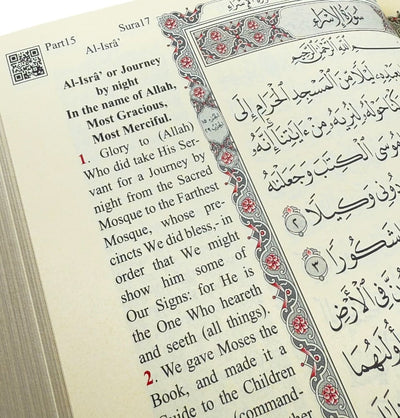 Part15
Sura17
Al-Isrâ’
Al-Isrâ’ or Journey
by night
In the name of Allah,
Most Gracious,
Most Merciful.
1. Glory to (Allah)
Who did take His Ser-
vant for a Journey by
night from the Sacred
Mosque to the Farthest
Mosque, whose pre-
cincts We did bless,- in
order that We might
show him some of
Our Signs: for He is
the One Who heareth
and seeth (all things).
2. We gave Moses the
Book, and made it a
Guide to the Children
(command-
سورة الإسراء
لَيْلًا مِّنَ الْمَسْجِدِ الْحَرَامِ إِلَى
حَوْلَهُ لِنُرِيَهُ مِنْ ءَايَاتِنَا إِنَّهُ
مُوسَى الْكِتَابَ وَجَعَلْنَاهُ
دُونِي وَكِيلًا ٢
شَكُورًا ٣
فِي الْأَرْضِ
أُولَاهُمَا